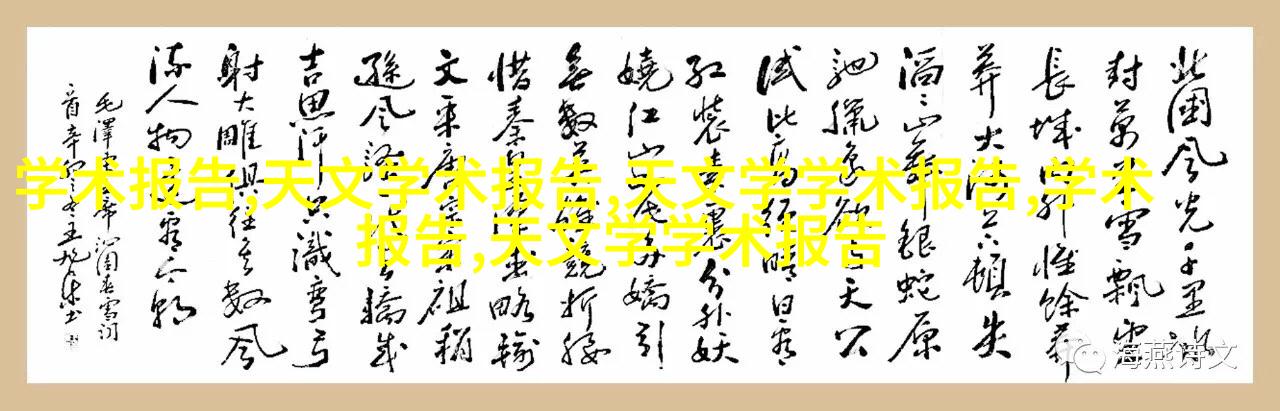 学术报告,天文学术报告,天文学学术报告,学术
报告,天文学学术报告
北国风光千里冰
封萬里雪飘望
長城内外惟馀莽
莽大河上下顿失
滔滔山舞银蛇原
驰蠟象欲与天公
试比高须晴日看
红装素裹分外妖
娆江山如此多娇引
无数英雄竞折腰
惜秦皇汉武略输
文采唐宗宋祖稍
逊风骚一代天骄成
吉思汗只識弯弓
射大雕俱往矣数风
流人物还看今朝
毛澤東 沁園春雪词
海燕诗文